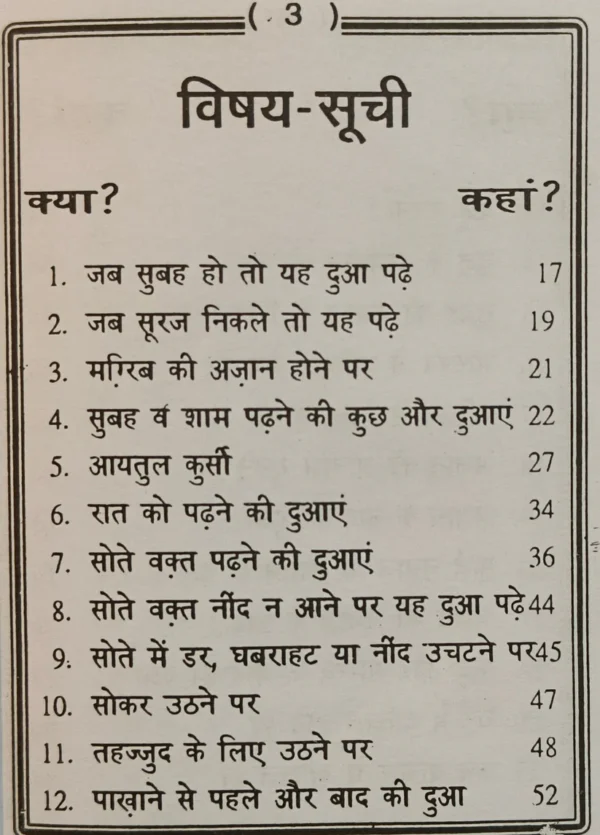 ( 3 )
विषय-सूची
क्या? कहां?
1. जब सुबह हो तो यह दुआ पढ़े 17
2. जब सूरज निकले तो यह पढ़े 19
3. मग़्रिब की अज़ान होने पर 21
4. सुबह व शाम पढ़ने की कुछ और दुआएं 22
5. आयतुल कुर्सी 27
6. रात को पढ़ने की दुआएं 34
7. सोते वक़्त पढ़ने की दुआएं 36
8. सोते वक़्त नींद न आने पर यह दुआ पढ़े 44
9. सोते में डर, घबराहट या नींद उचटने पर 45
10. सोकर उठने पर 47
11. तहज्जुद के लिए उठने पर 48
12. पाख़ाने से पहले और बाद की दुआ 52